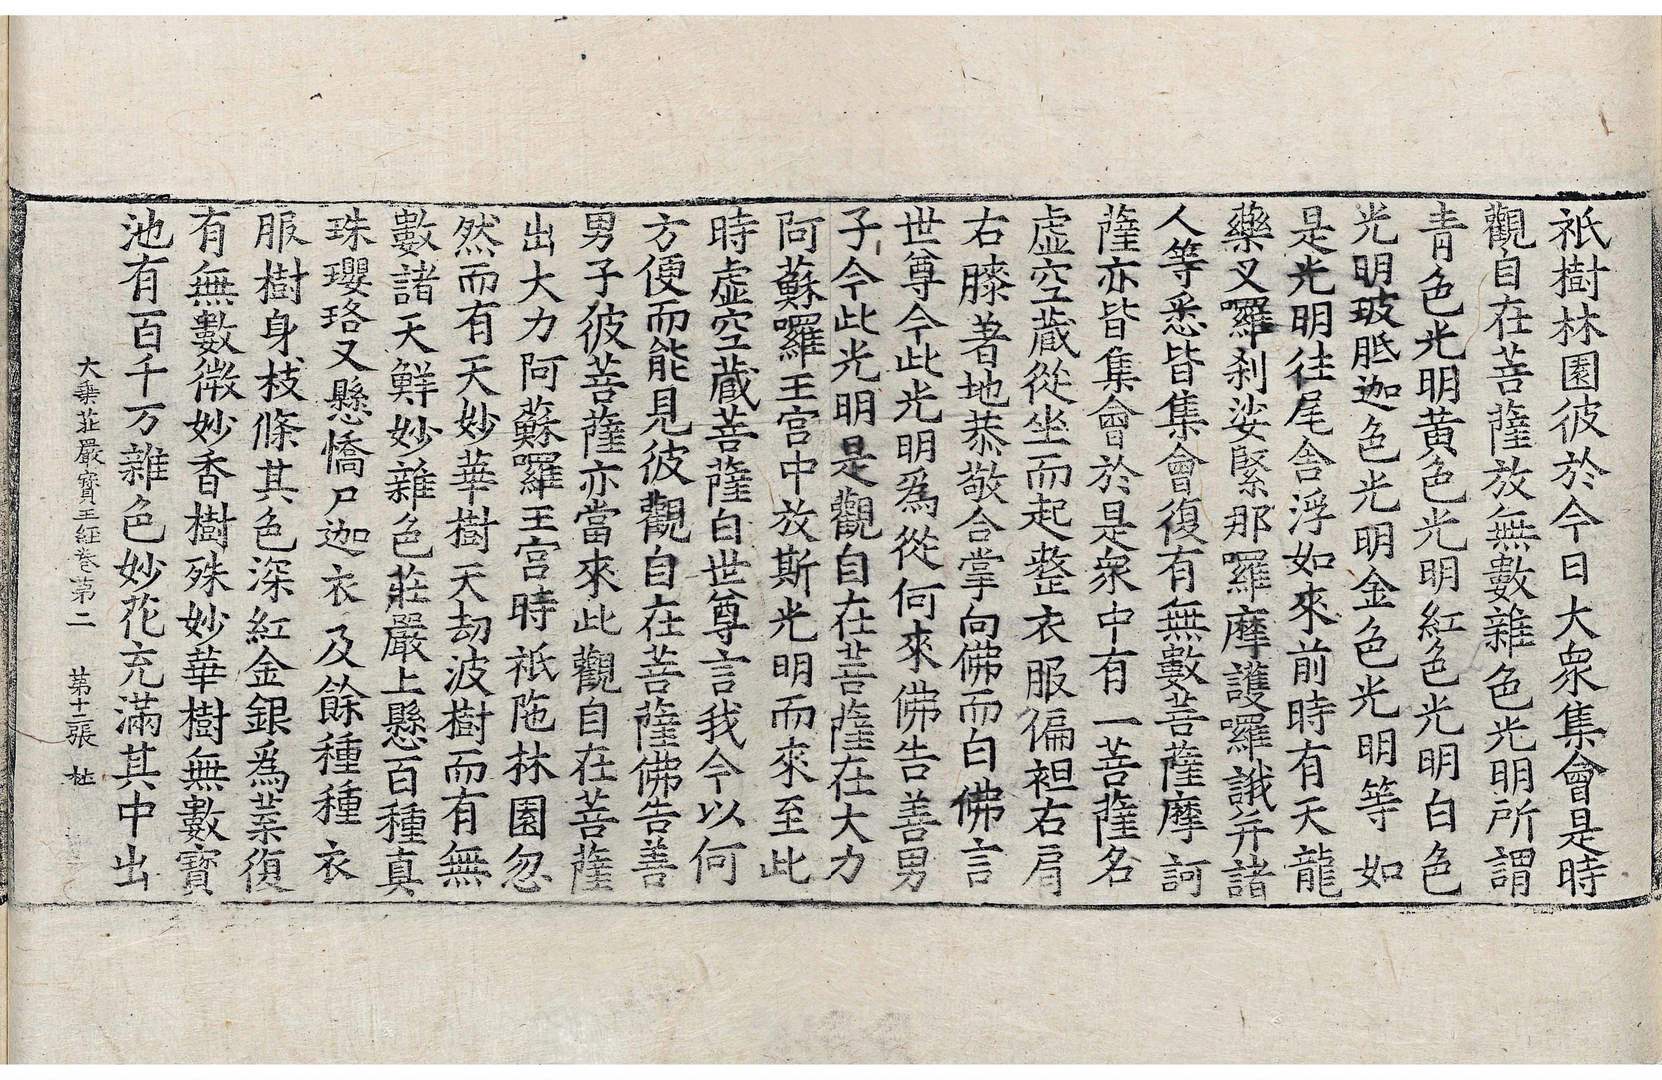 祇樹林園彼於今日大衆集會是時
觀自在菩薩放無數雜色光明所謂
青色光明黃色光明紅色光明白色
光明玻胝迦色光明金色光明等如
是光明往尾舍浮如來前時有天龍
藥叉囉刹娑緊那囉摩護囉誐并諸
人等悉皆集會復有無數菩薩摩訶
薩亦皆集會於是衆中有一菩薩名
虛空藏從坐而起整衣服徧袒右肩
右膝著地恭敬合掌向佛而白佛言
世尊今此光明爲從何來佛告善男
子今此光明是觀自在菩薩在大力
阿蘇囉王宮中放斯光明而來至此
時虛空藏菩薩白世尊言我今以何
方便而能見彼觀自在菩薩佛告善
男子彼菩薩亦當來此觀自在菩薩
出大力阿蘇囉王宮時祇陁林園忽
然而有天妙華樹天劫波樹而有無
數諸天鮮妙雜色莊嚴上懸百種真
珠瓔珞又懸憍尸迦衣及餘種種衣
服樹身枝條其色深紅金銀爲葉復
有無數微妙香樹殊妙華樹無數寶
池有百千万雜色妙花充滿其中出
大乘莊嚴寶王經卷第二 第十二張